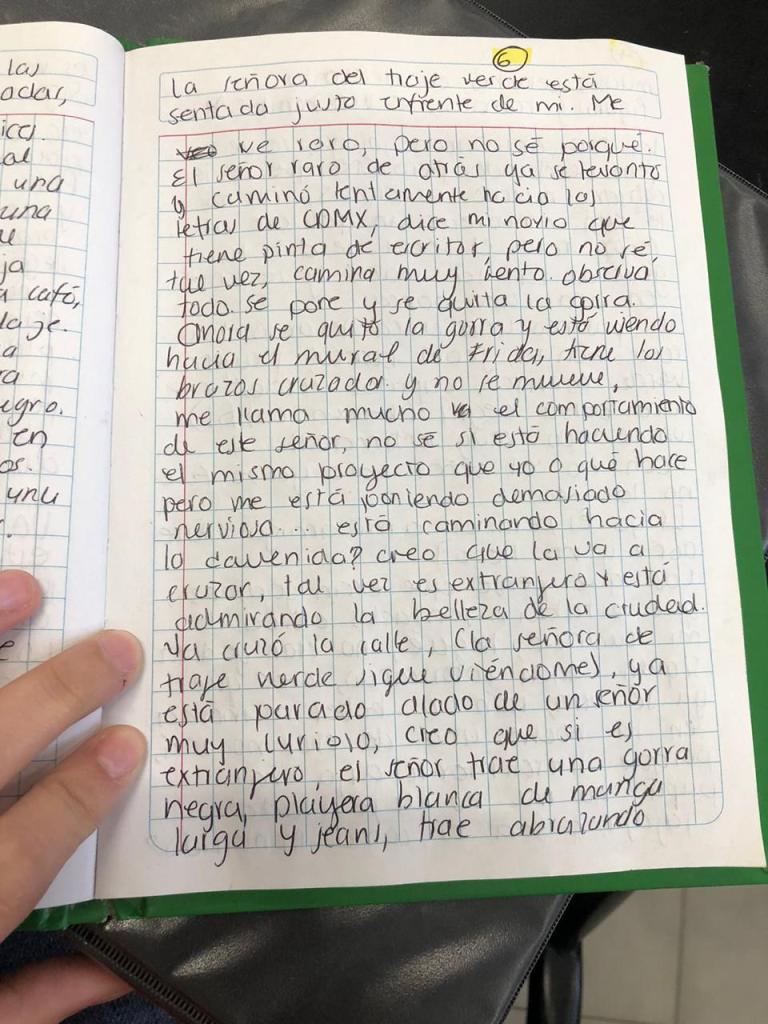 las
odas,
icas.
al
una
una
ue
ja
a café,
laje.
a
ra
egro.
en
os.
unu
6
La señora del traje verde está
sentada justo enfrente de mi. Me
ve raro, pero no sé porqué.
El señor raro de atrás ya se levantó
y caminó lentamente hacia las
letras de CDMX, dice mi novio que
tiene pinta de escritor, pero no sé,
tal vez, camina muy lento. observa
todo. se pone y se quita la gorra.
Ahora se quitó la gorra y está viendo
hacia el mural de Frida, tiene los
brazos cruzados y no se mueve,
me llama mucho el comportamiento
de este señor, no se si está haciendo
el mismo proyecto que yo o qué hace
pero me está poniendo demasiado
nerviosa... está caminando hacia
la davenida? creo que la va a
cruzar, tal vez es extranjero y está
admirando la belleza de la ciudad.
Ya cruzó la calle, (la señora de
traje verde sigue viéndome), ya
está parado alado de un señor
muy curioso, creo que si es
extranjero, el señor trae una gorra
negra, playera blanca de manga
larga y jeans, trae abrazando